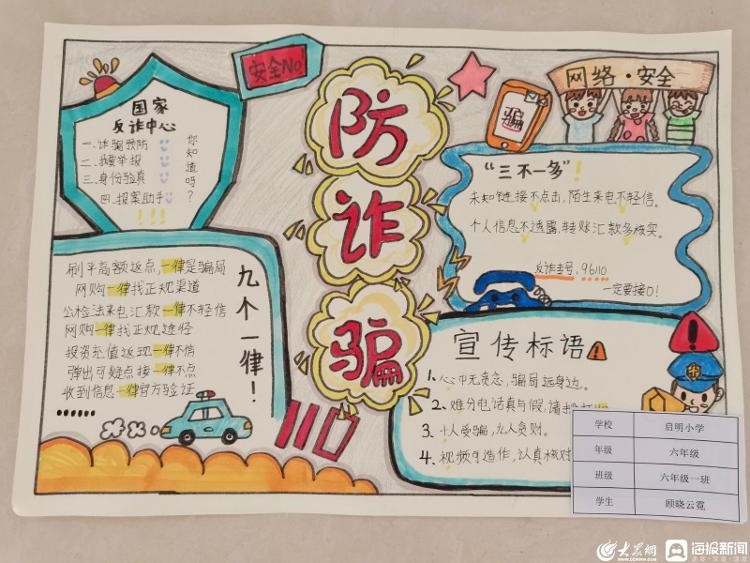 安全No
防诈骗
骗
网络·安全
国家
反诈中心
一.诈骗预防
二.我要举报
三.身份验真
四.报案助手
!!!
你知道吗?
“三不一多”!
未知链接不点击,陌生来电不轻信。
个人信息不透露,转账汇款多核实。
反诈专号,96110
一定要接哦!
九个一律!
刷单高额返点,一律是骗局
网购一律找正规渠道
公检法来电汇款一律不轻信
网购一律找正规途径
投资充值返现一律不信
弹出可疑点接一律不点
收到信息一律官方验证
......
110
宣传标语
1、心中无贪念,骗局远身边。
2、难分电话真与假,请
3、十人受骗,九人贪财。
4、视频可造作,认真核对
学校 启明小学
年级 六年级
班级 六年级一班
学生 顾晓云霓
大众网
海报新闻